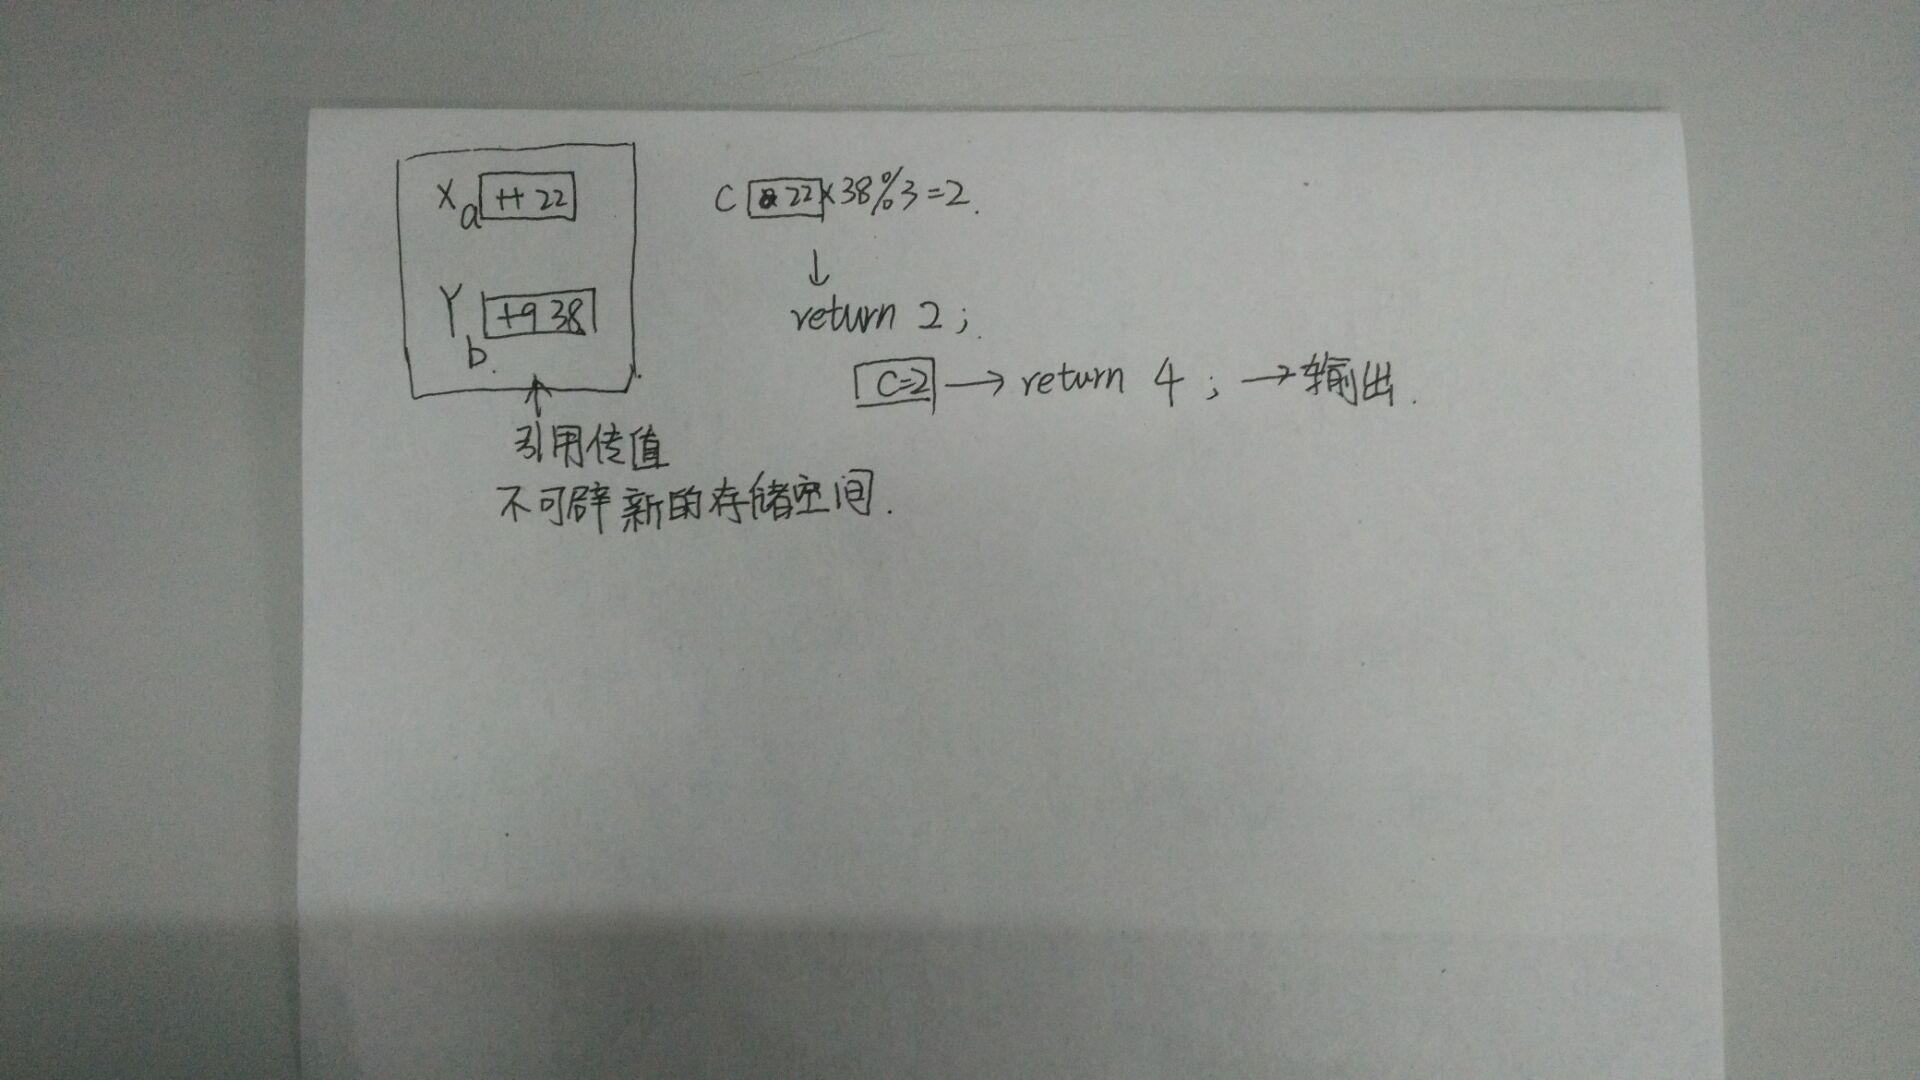 X a 卄 22
Y b. 卄9 38
引用传值
不可辟新的存储空间.
C 22×38%3=2.
↓
return 2;
C=2 → return 4; → 输出.